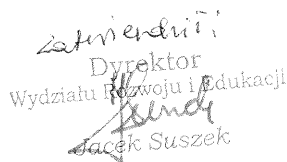 Zatwierdził:
Dyrektor
Wydziału Rozwoju i Edukacji
Jacek Suszek